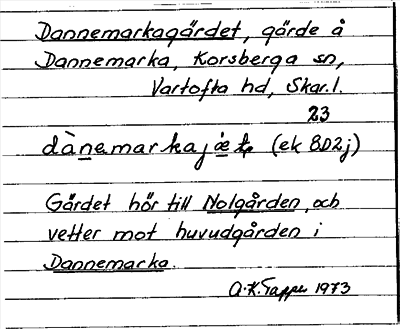 Dannemarkagärdet, gärde å
Dannemarka, Korsberga sn,
Vartofta hd, Skar. l.
23
dànemarkajæt (ek 8D2j)
Gärdet hör till Nolgården, och
vetter mot huvudgården i
Dannemarka.
A.K. Tapper 1973